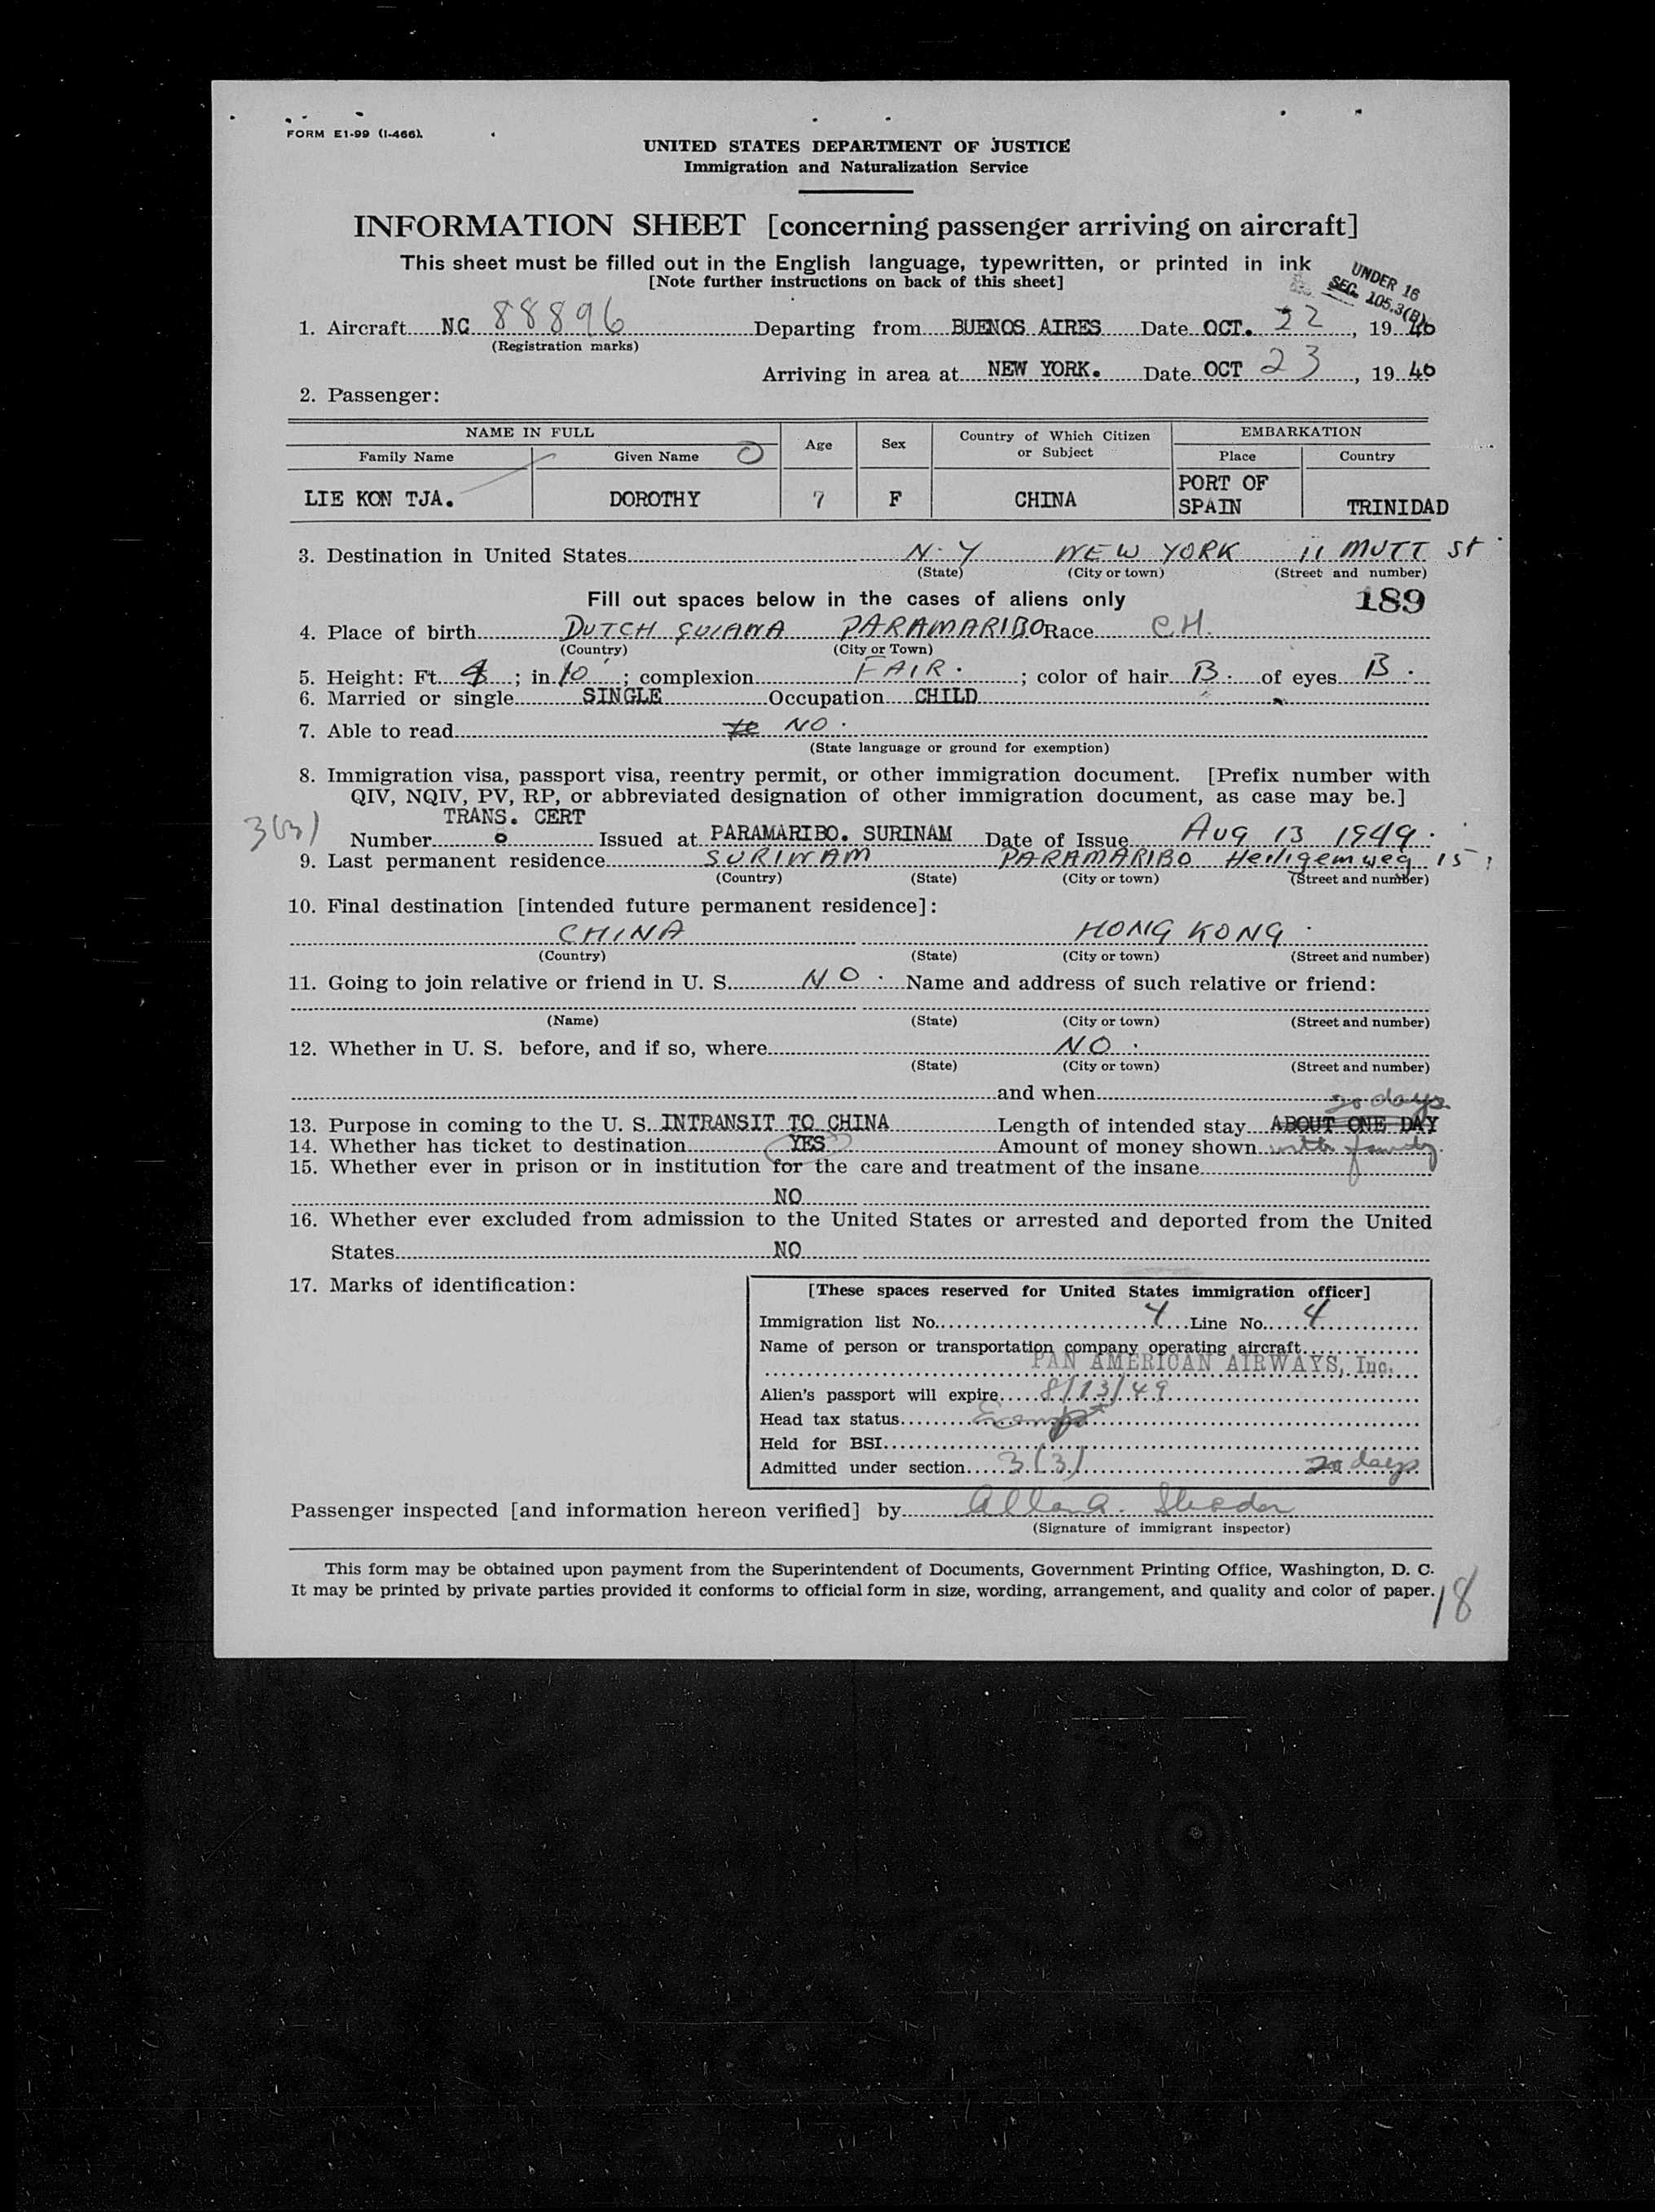 FORM E1-99 (I-466).
UNITED STATES DEPARTMENT OF JUSTICE
Immigration and Naturalization Service
INFORMATION SHEET [concerning passenger arriving on aircraft]
This sheet must be filled out in the English language, typewritten, or printed in ink
[Note further instructions on back of this sheet]
UNDER 16
SEC. 105.3(B)
1. Aircraft NC 88896 Departing from BUENOS AIRES Date OCT. 22, 19 46
(Registration marks)
Arriving in area at NEW YORK. Date OCT 23, 19 46
2. Passenger:
NAME IN FULL Age Sex Country of Which Citizen or Subject EMBARKATION
Family Name Given Name Place Country
LIE KON TJA. DOROTHY 7 F CHINA PORT OF SPAIN TRINIDAD
3. Destination in United States N.Y NEW YORK 11 MUTT St
(State) (City or town) (Street and number)
Fill out spaces below in the cases of aliens only 189
4. Place of birth DUTCH GUIANA PARAMARIBO Race CH.
(Country) (City or Town)
5. Height: Ft. 4; in 10; complexion FAIR. ; color of hair B. of eyes B.
6. Married or single SINGLE Occupation CHILD
7. Able to read NO.
(State language or ground for exemption)
8. Immigration visa, passport visa, reentry permit, or other immigration document. [Prefix number with
QIV, NQIV, PV, RP, or abbreviated designation of other immigration document, as case may be.]
TRANS. CERT
3(3) Number 0 Issued at PARAMARIBO. SURINAM Date of Issue AUG 13 1949.
9. Last permanent residence SURINAM PARAMARIBO Heiligemweg 15
(Country) (State) (City or town) (Street and number)
10. Final destination [intended future permanent residence]:
CHINA HONG KONG
(Country) (State) (City or town) (Street and number)
11. Going to join relative or friend in U. S. NO. Name and address of such relative or friend:
(Name) (State) (City or town) (Street and number)
12. Whether in U. S. before, and if so, where NO.
(State) (City or town) (Street and number)
and when
20 days
13. Purpose in coming to the U. S. INTRANSIT TO CHINA Length of intended stay ABOUT ONE DAY
14. Whether has ticket to destination YES Amount of money shown with family
15. Whether ever in prison or in institution for the care and treatment of the insane
NO
16. Whether ever excluded from admission to the United States or arrested and deported from the United
States NO
17. Marks of identification:
[These spaces reserved for United States immigration officer]
Immigration list No. 4 Line No. 4
Name of person or transportation company operating aircraft
PAN AMERICAN AIRWAYS, Inc.
Alien's passport will expire 8/13/49
Head tax status Exempt
Held for BSI
Admitted under section 3(3) 20 days
Passenger inspected [and information hereon verified] by
(Signature of immigrant inspector)
This form may be obtained upon payment from the Superintendent of Documents, Government Printing Office, Washington, D. C.
It may be printed by private parties provided it conforms to official form in size, wording, arrangement, and quality and color of paper.
18